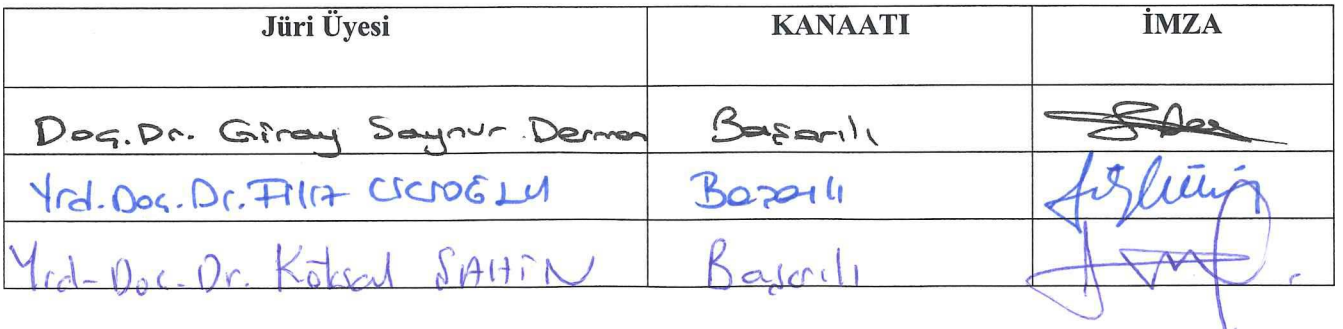 Jüri Üyesi KANAATI İMZA
Doç.Dr. Giray Saynur Derman Başarılı
Yrd.Doç.Dr. Filiz CİCİOĞLU Başarılı
Yrd-Doç-Dr. Köksal ŞAHİN Başarılı